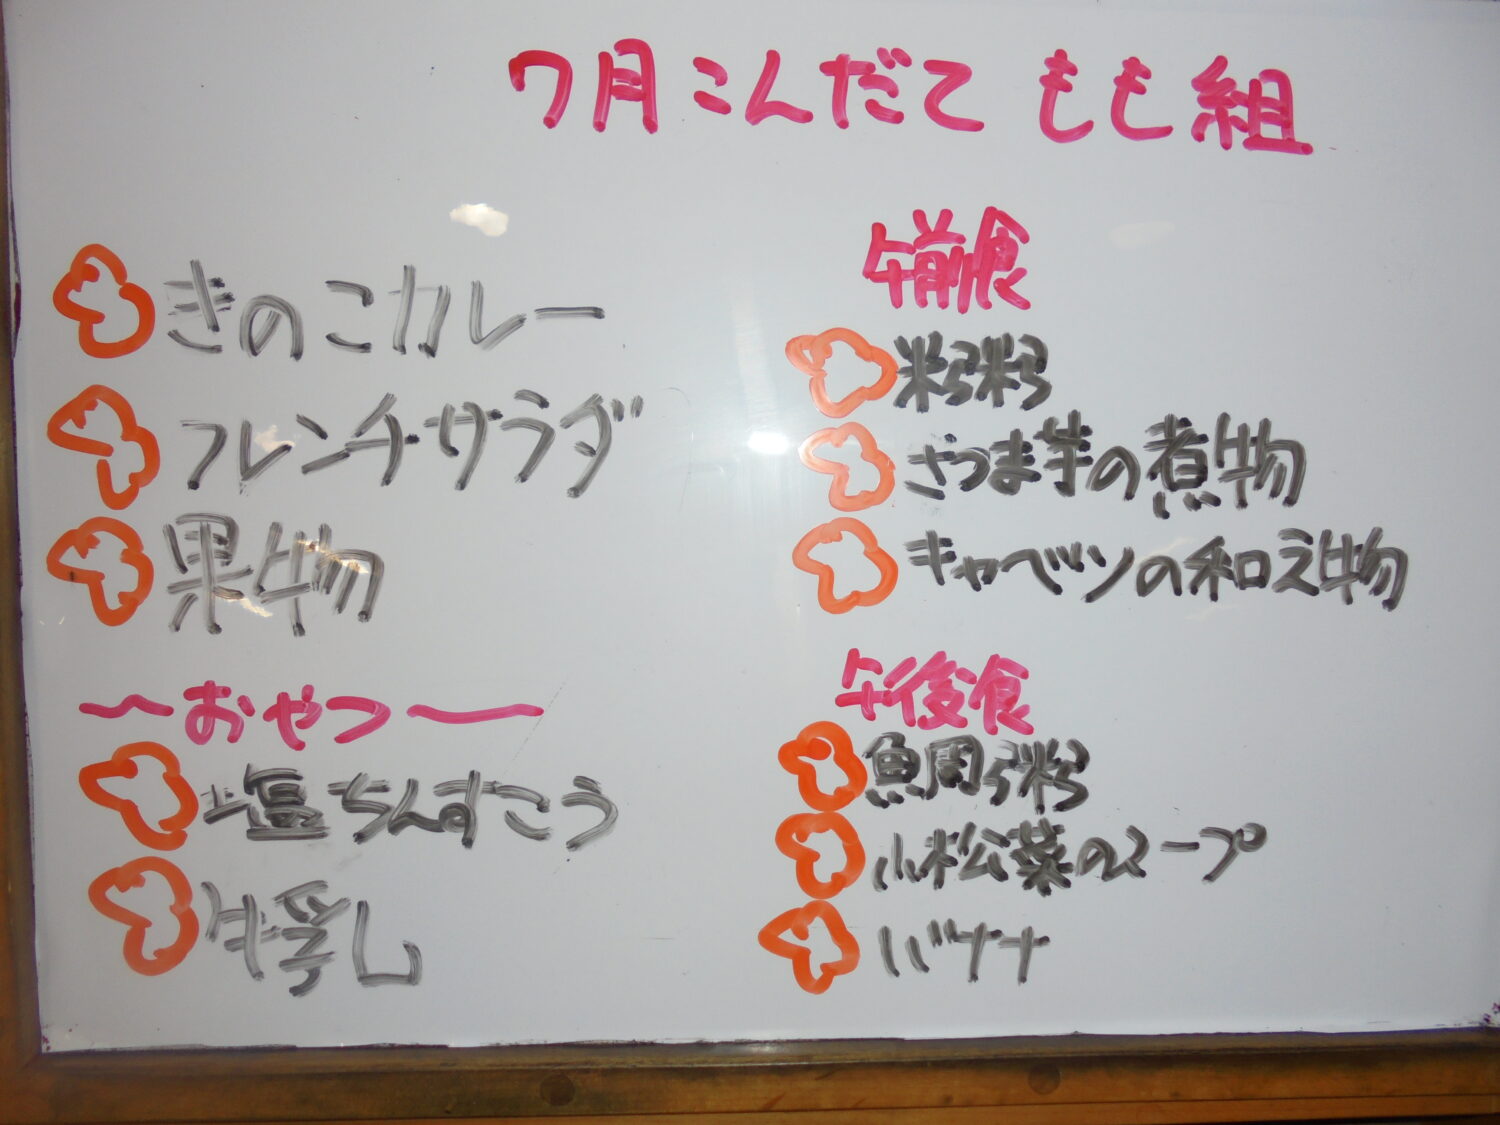 7月こんだて もも組
きのこカレー
フレンチサラダ
果物
〜おやつ〜
塩ちんすこう
牛乳
午前食
米粥
さつま芋の煮物
キャベツの和え物
午後食
鯛粥
小松菜のスープ
バナナ